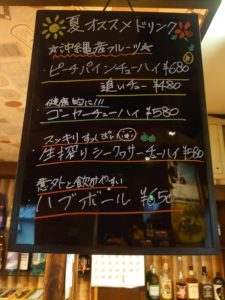 夏オススメドリンク
☆沖縄産フルーツ☆
・ピーチパインチューハイ ¥680
追いチュー ¥480
健康的に!!!
・ゴーヤーチューハイ ¥580
スッキリすっぱい
・生搾りシークヮサーチューハイ ¥580
意外と飲みやすい
・ハブボール ¥650